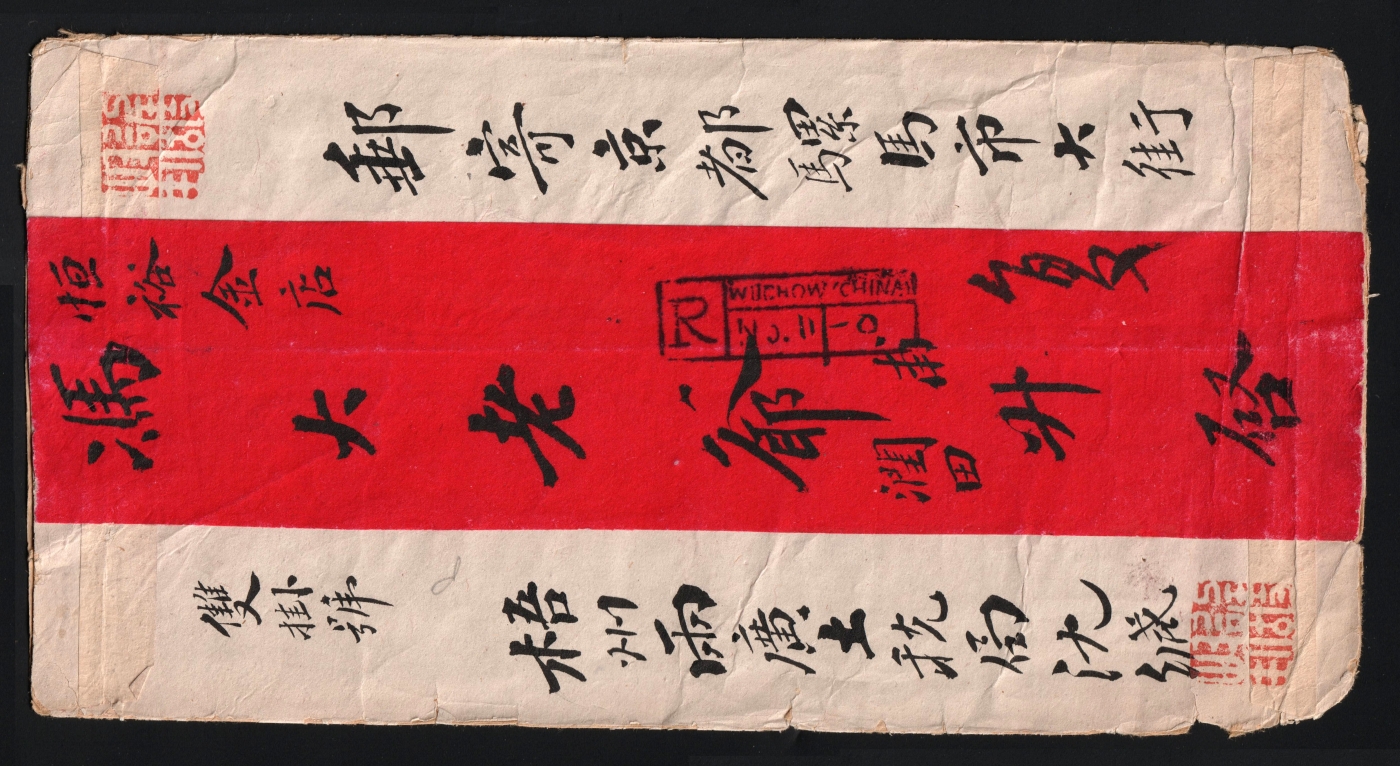 郵寄京都騾馬市大街
恒裕金店
馮大老爺
甫
潤田
升啟
R WUCHOW, CHINA
No.
雙掛號
梧州兩廣土税局沈緘